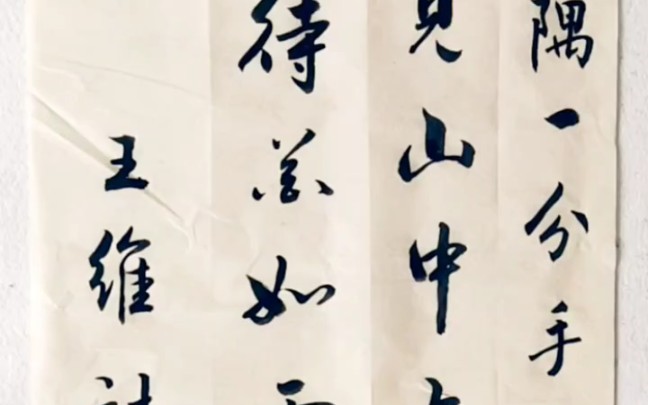 隅一分手
見山中
待花如
王維